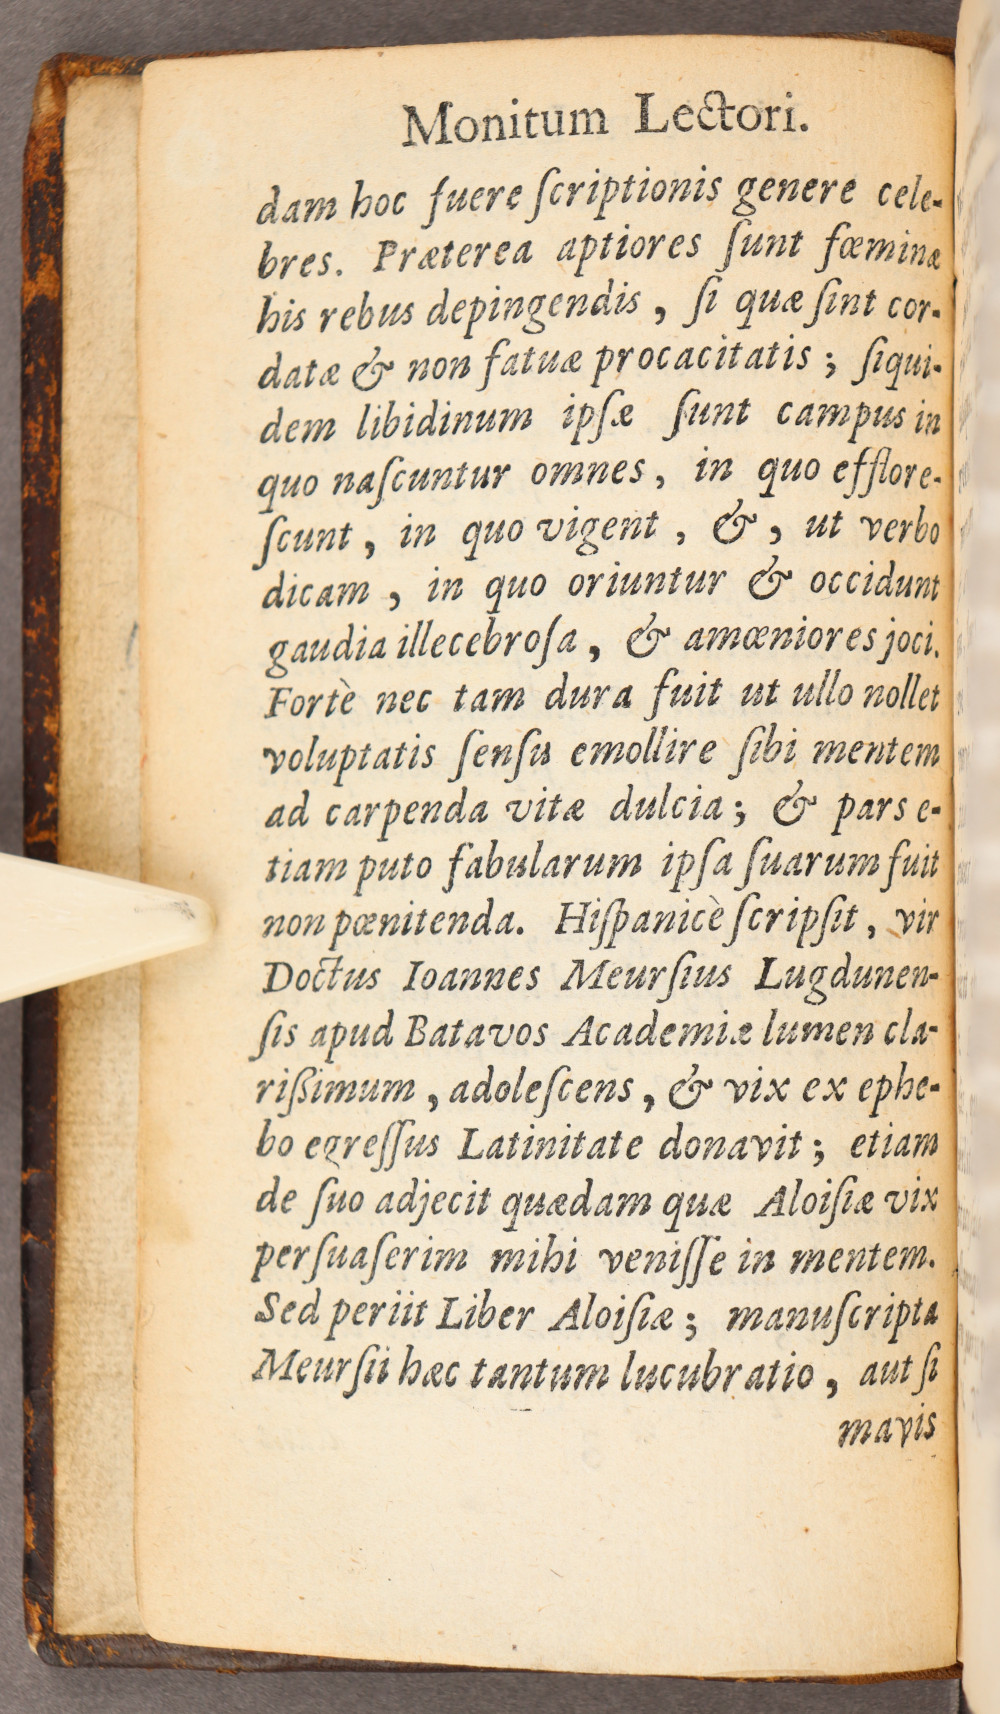 Monitum Lectori.
dam hoc fuere ſcriptionis genere cele-
bres. Præterea aptiores ſunt fœminæ
his rebus depingendis, ſi quæ ſint cor-
datæ & non fatuæ procacitatis; ſiqui-
dem libidinum ipſæ ſunt campus in
quo naſcuntur omnes, in quo efflore-
ſcunt, in quo vigent, &, ut verbo
dicam, in quo oriuntur & occidunt
gaudia illecebroſa, & amœniores joci.
Fortè nec tam dura fuit ut ullo nollet
voluptatis ſenſu emollire ſibi mentem
ad carpenda vitæ dulcia; & pars e-
tiam puto fabularum ipſa ſuarum fuit
non pœnitenda. Hiſpanicè ſcripſit, vir
Doctus Ioannes Meurſius Lugdunen-
ſis apud Batavos Academiæ lumen cla-
rißimum, adoleſcens, & vix ex ephe-
bo egreſſus Latinitate donavit; etiam
de ſuo adjecit quædam quæ Aloiſiæ vix
perſuaſerim mihi veniſſe in mentem.
Sed periit Liber Aloiſiæ; manuſcripta
Meurſii hæc tantum lucubratio, aut ſi
mavis